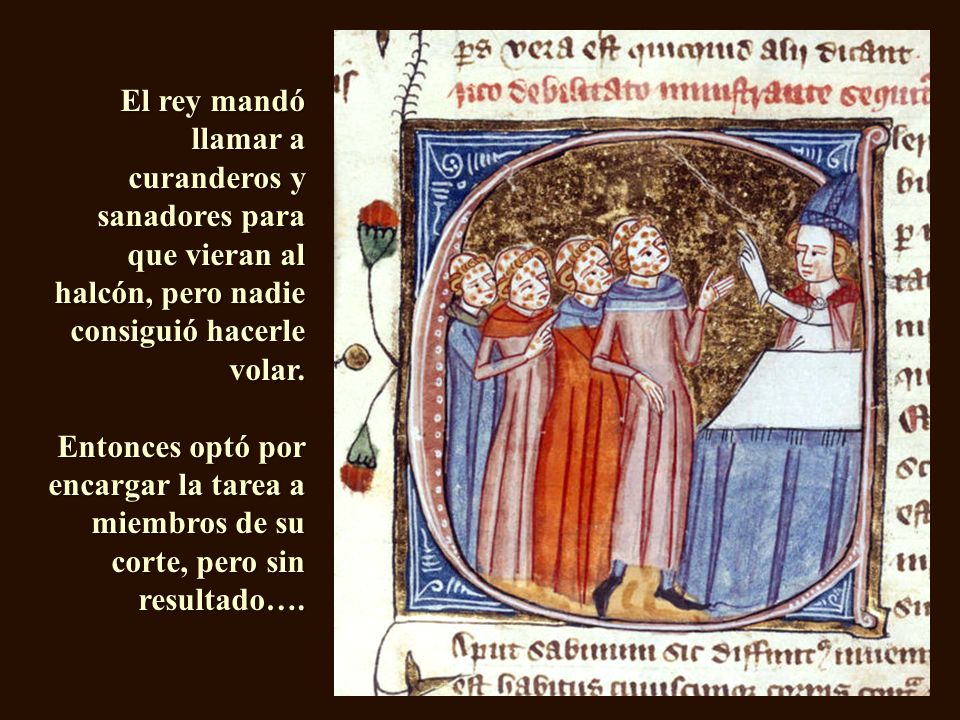 El rey mandó
llamar a
curanderos y
sanadores para
que vieran al
halcón, pero nadie
consiguió hacerle
volar.
Entonces optó por
encargar la tarea a
miembros de su
corte, pero sin
resultado….
vera est dicant
debilitato
sabinum sic
est habitus